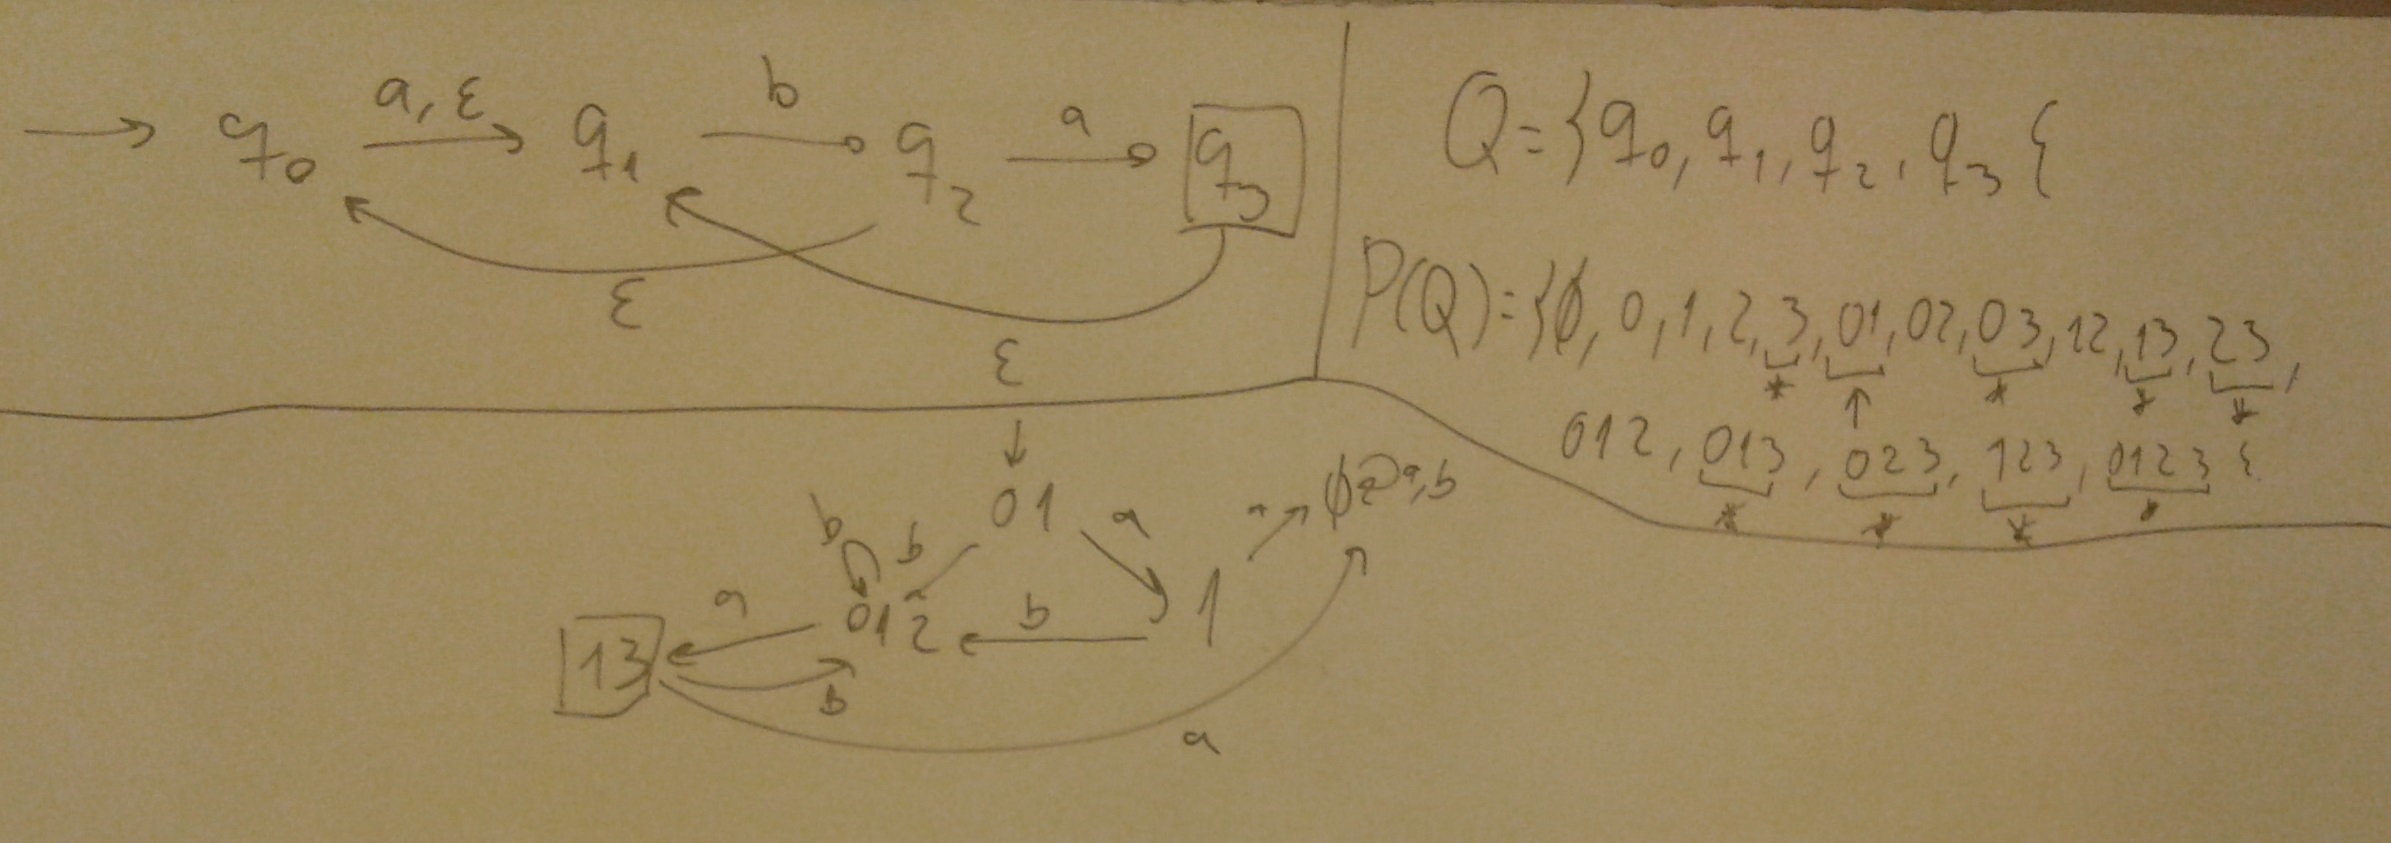 a, ε b a
→ q₀ → q₁ → q₂ → q₃
ε
ε
Q = }q₀, q₁, q₂, q₃{
P(Q) = }ϕ, 0, 1, 2, 3, 01, 02, 03, 12, 13, 23,
* ↑ * * *
012, 013, 023, 123, 0123 {
* * * *
↓
01 a a ϕ a,b
b b
a 012 b 1
13
b
a